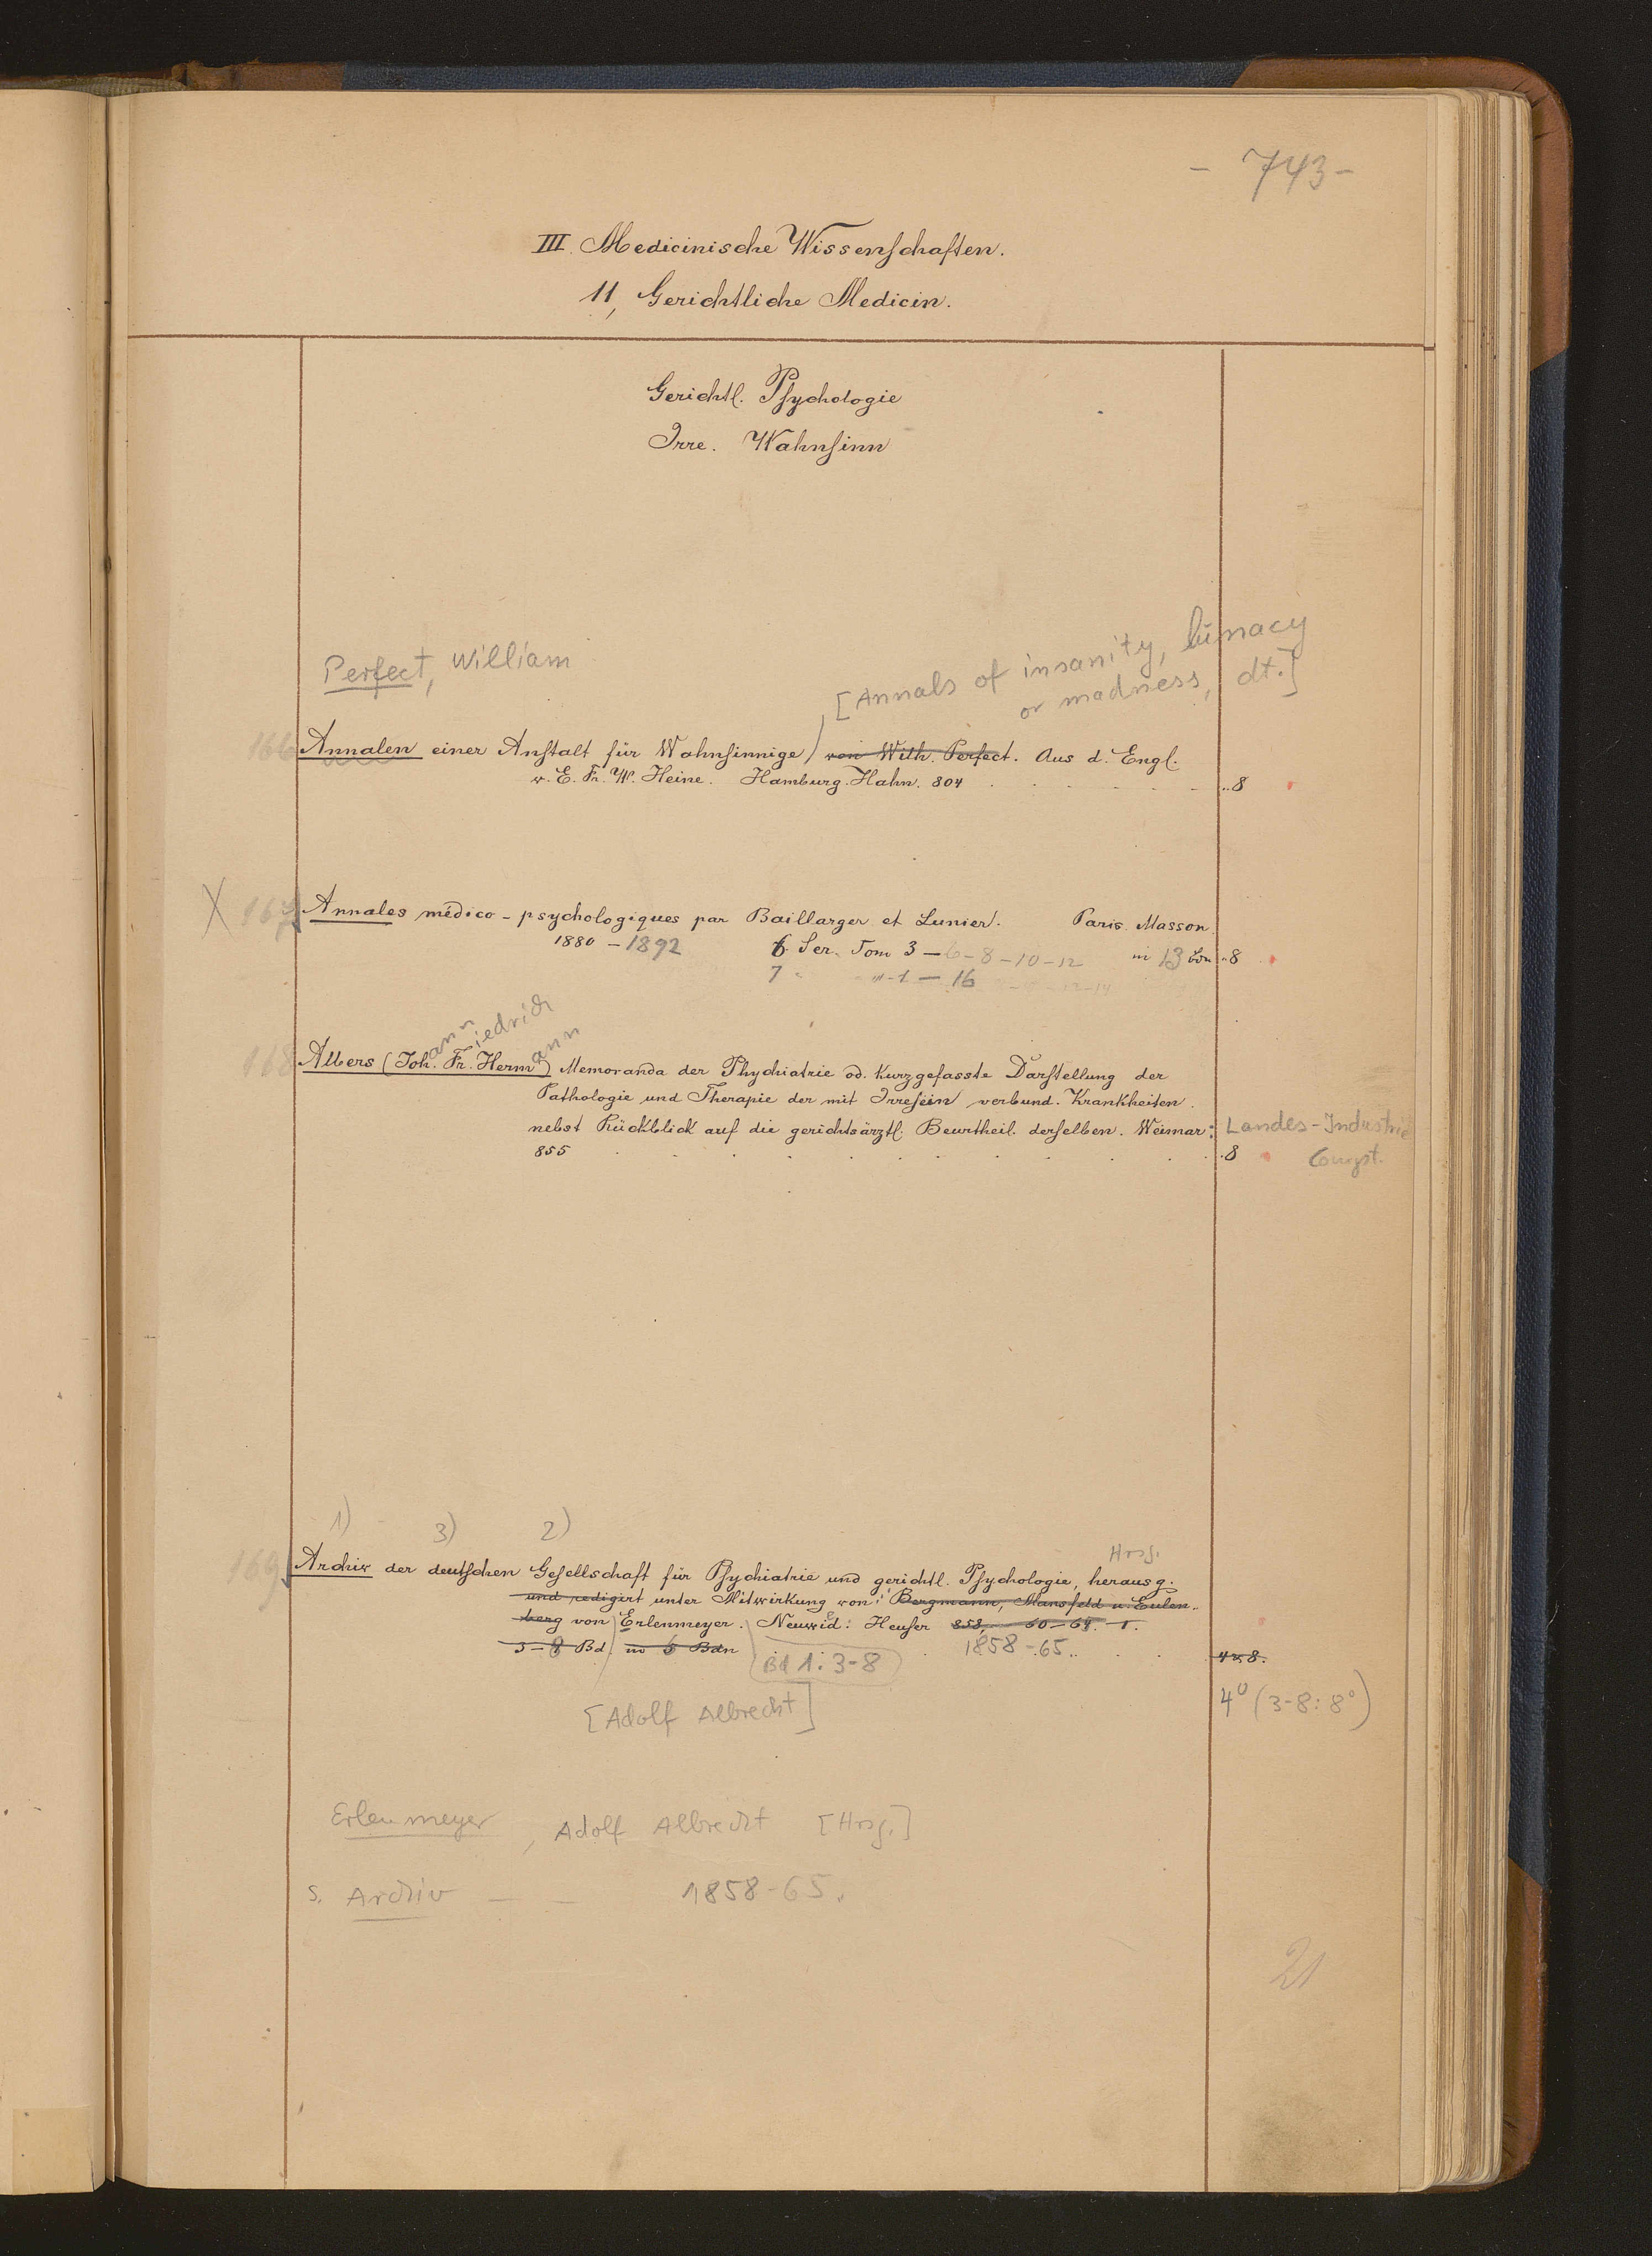 - 743 -
III. Medicinische Wissenschaften.
11, Gerichtliche Medicin.
Gerichtl. Psychologie
Irre. Wahnsinn
Perfect, William
[Annals of insanity, lunacy
or madness, dt.]
166 Annalen einer Anstalt für Wahnsinnige von Wilh. Perfect. Aus d. Engl.
v. E. Fr. W. Heine. Hamburg. Hahn. 804 8
X 167 Annales médico-psychologiques par Baillarger et Lunier. Paris. Masson.
1880 - 1892 6. Ser. Tom 3 - 6 - 8 - 10 - 12 in 13 Bdn 8
7 " " 1 - 16
168 Albers (Johann Friedrich Hermann) Memoranda der Phychiatrie od. kurzgefasste Darstellung der
Pathologie und Therapie der mit Irresein verbund. Krankheiten
nebst Rückblick auf die gerichtsärztl. Beurtheil. derselben. Weimar: Landes-Industrie
855 8
1) 3) 2)
Hrsg.
169 Archiv der deutschen Gesellschaft für Psychiatrie und gerichtl. Psychologie, herausg.
und redigirt unter Mitwirkung von: Bergmann, Mansfeld u. Eulen-
berg von Erlenmeyer. Neuwied: Heuser 858, 60-65. 1.
3-8 Bd. in 6 Bdn Bd 1. 3-8 1858-65. 4 u 8.
4° (3-8: 8°)
[Adolf Albrecht]
Erlenmeyer, Adolf Albrecht [Hrsg.]
s. Archiv — — 1858-65.
21